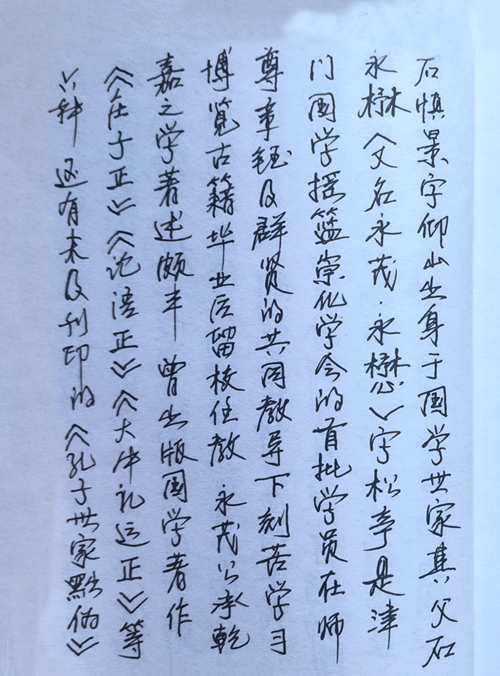 石慎景字仰山出身于国学世家其父石
永楙（又名永茂·永懋）字松亭是津
门国学摇篮崇化学会的首批学员在师
尊章钰及群贤的共同教导下刻苦学习
博览古籍毕业后留校任教 永茂公承乾
嘉之学著述颇丰 曾出版国学著作
《庄子正》《论语正》《大中礼运正》等
六种 还有未及刊印的《孔子世家》